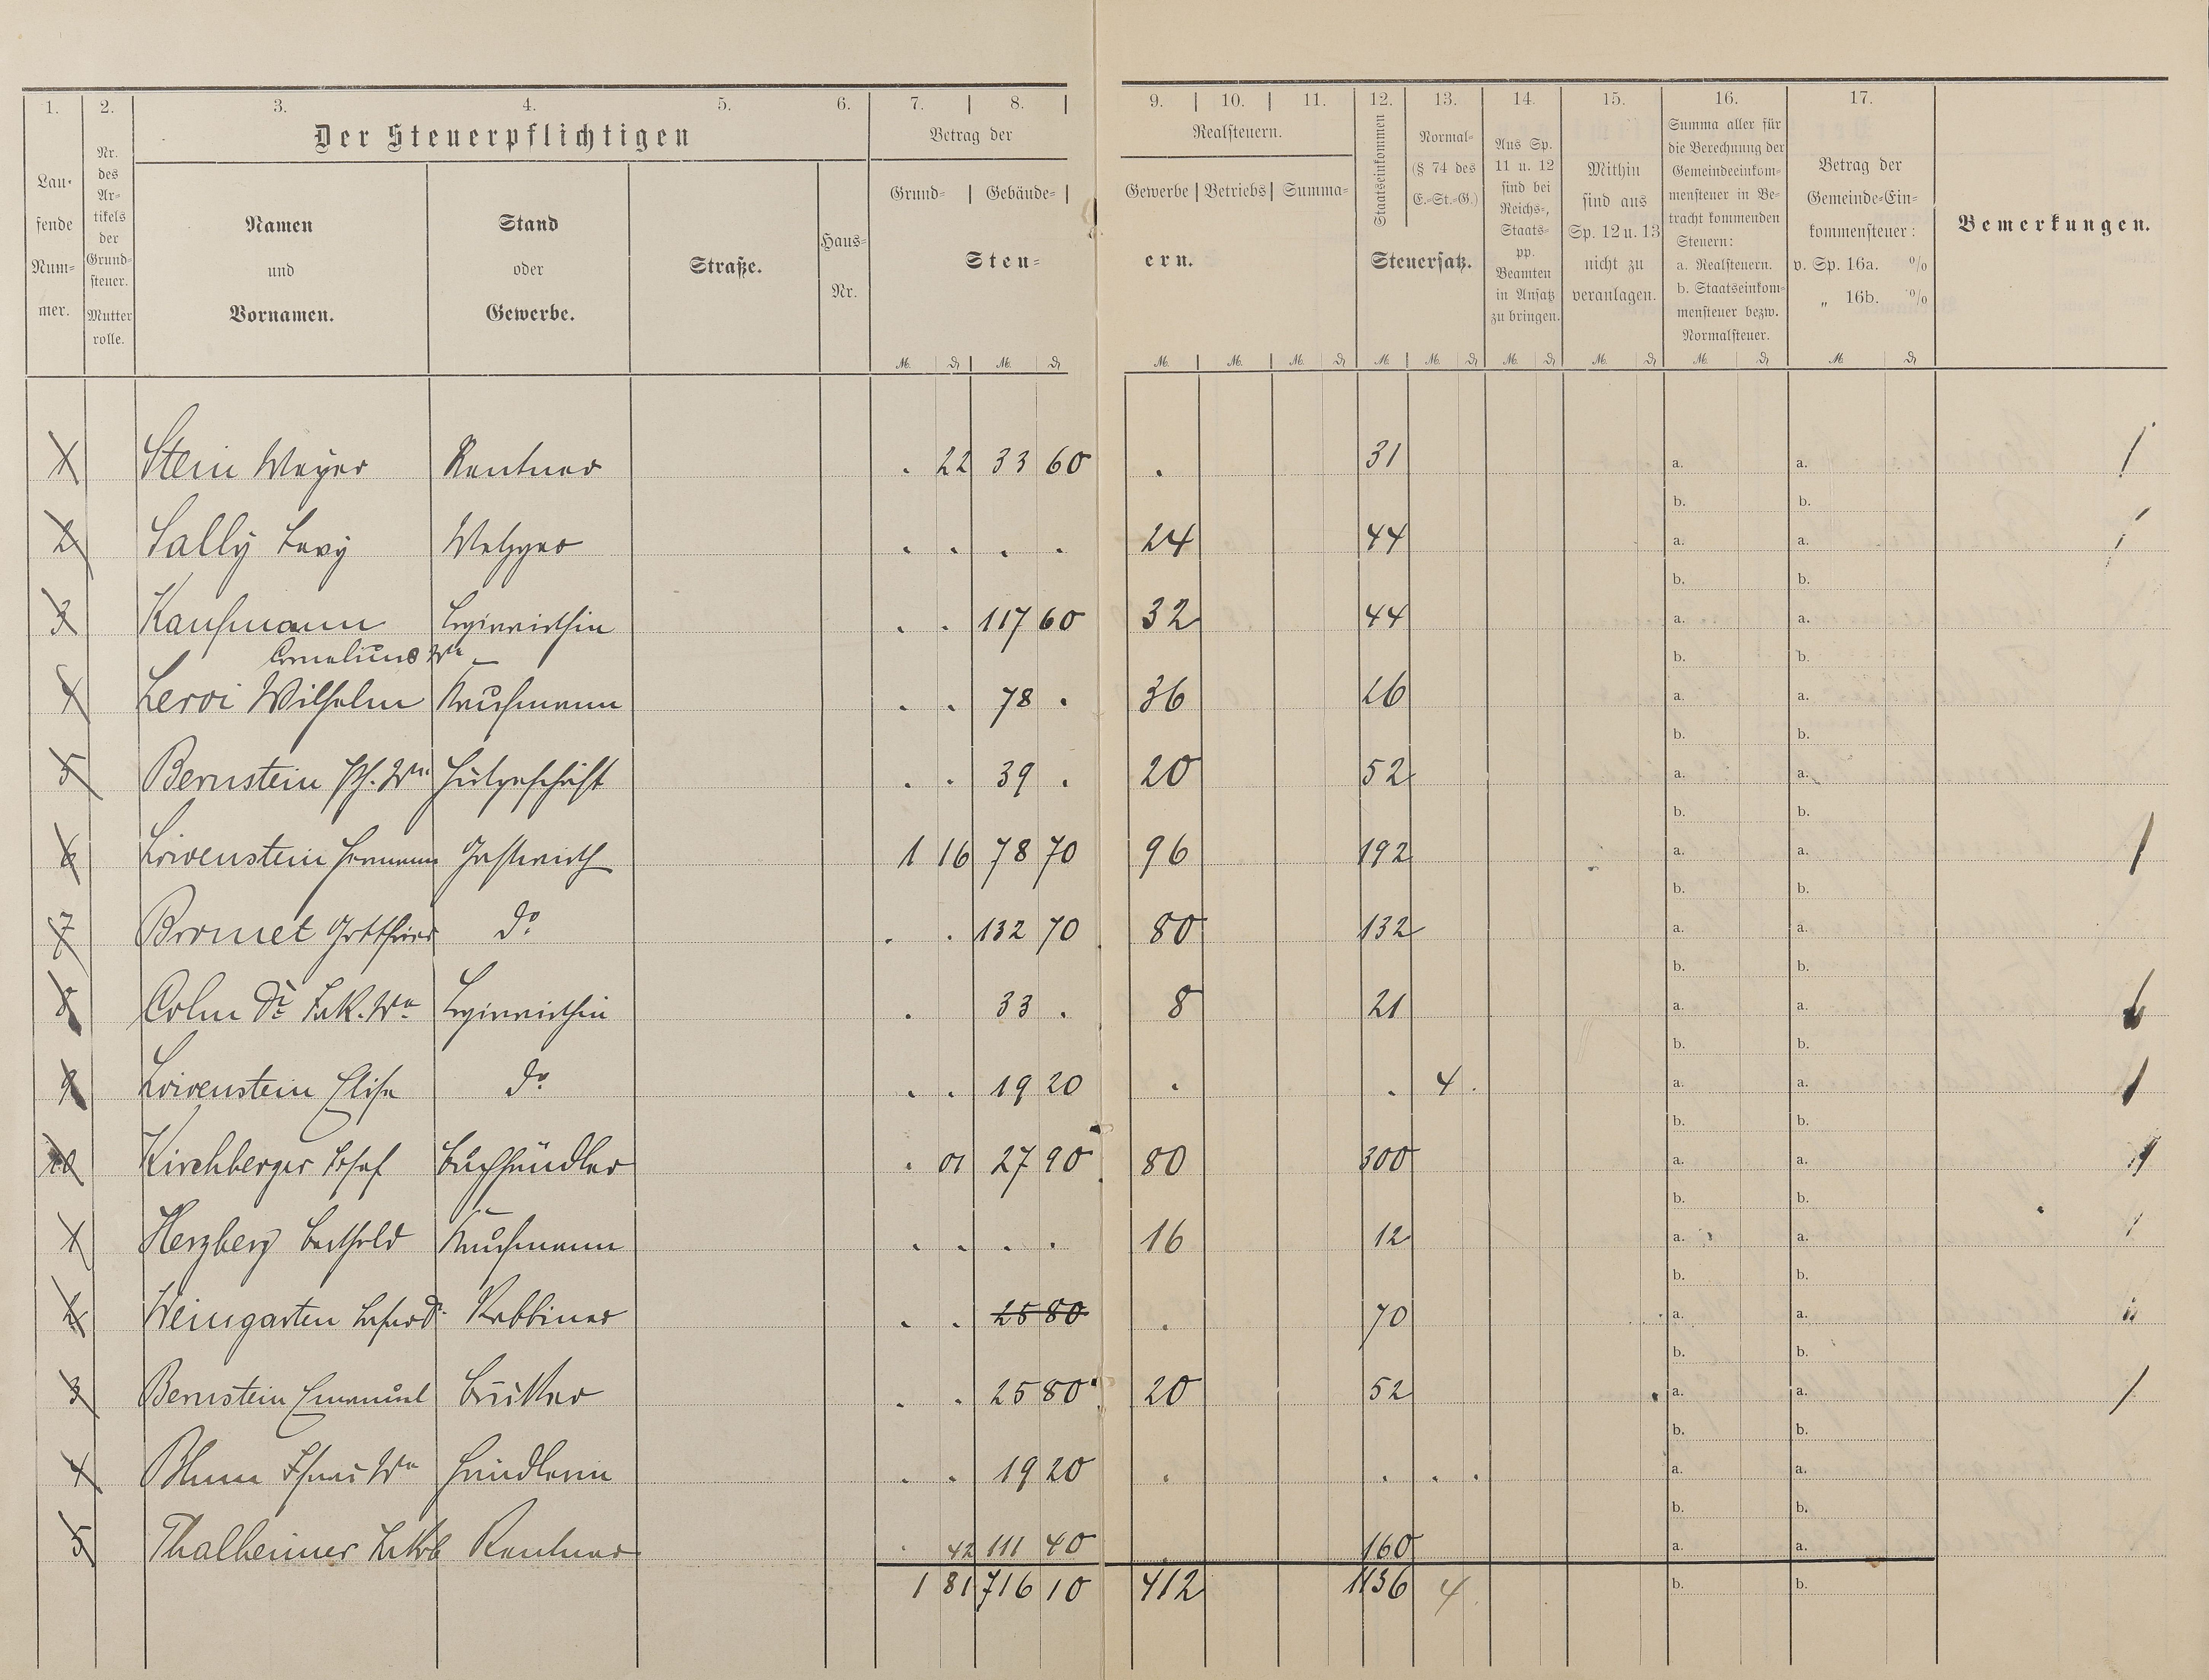 1. 2. 3. 4. 5. 6. 7. 8. 9. 10. 11. 12. 13. 14. 15. 16. 17.
Der Steuerpflichtigen
Betrag der
Realsteuern.
Lau-
fende
Num-
mer.
Nr.
des
Ar-
tikels
der
Grund-
steuer.
Mutter
rolle.
Namen
und
Vornamen.
Stand
oder
Gewerbe.
Straße.
Haus-
Nr.
Grund- Gebäude-
Steu-
Gewerbe Betriebs Summa-
ern.
Staatseinkommen
Normal-
(§ 74 des
E.-St.-G.)
Steuersatz.
Aus Sp.
11 u. 12
sind bei
Reichs-,
Staats-
pp.
Beamten
in Ansatz
zu bringen.
Mithin
sind aus
Sp. 12 u. 13
nicht zu
veranlagen.
Summa aller für
die Berechnung der
Gemeindeeinkom-
mensteuer in Be-
tracht kommenden
Steuern:
a. Realsteuern.
b. Staatseinkom-
mensteuer bezw.
Normalsteuer.
Betrag der
Gemeinde-Ein-
kommensteuer:
v. Sp. 16a. %
„ 16b. %
Bemerkungen.
M. ₰ M. ₰ M. M. M. ₰ M. M. ₰ M. ₰ M. ₰ M. ₰ M. ₰
1 Stein Mayer Rentner . 22 33 60 . 31 a. a.
b. b.
2 Sally Levy Metzger . . . . 24 44 a. a.
b. b.
3 Kaufmann Logirwirthin . . 117 60 32 44 a. a.
Cornelius We b. b.
4 Leroi Wilhelm Kaufmann . . 78 . 36 26 a. a.
b. b.
5 Bernstein Ph. We Hutgeschäft . . 39 . 20 52 a. a.
b. b.
6 Löwenstein Hermann Gastwirth 1 16 78 70 96 192 a. a.
b. b.
7 Bromet Gottfried do . . 132 70 80 132 a. a.
b. b.
8 Cohn Dr. Isk. We Logirwirthin . 33 . 8 21 a. a.
b. b.
9 Löwenstein Elise do . . 19 20 . . 4 . a. a.
b. b.
10 Kirchberger Josef Buchhändler . 01 27 90 80 300 a. a.
b. b.
1 Herzberg Berthold Kaufmann . . . . 16 12 a. a.
b. b.
2 Weingarten Rabbiner . . 25 80 . 70 a. a.
b. b.
3 Bernstein Emanuel . . 25 80 20 52 a. a.
b. b.
4 Blum We Händlerin . . 19 20 . . . . a. a.
b. b.
5 Thalheimer Jakob Rentner . 42 111 40 . 160 a. a.
1 81 716 10 412 1136 4 b. b.